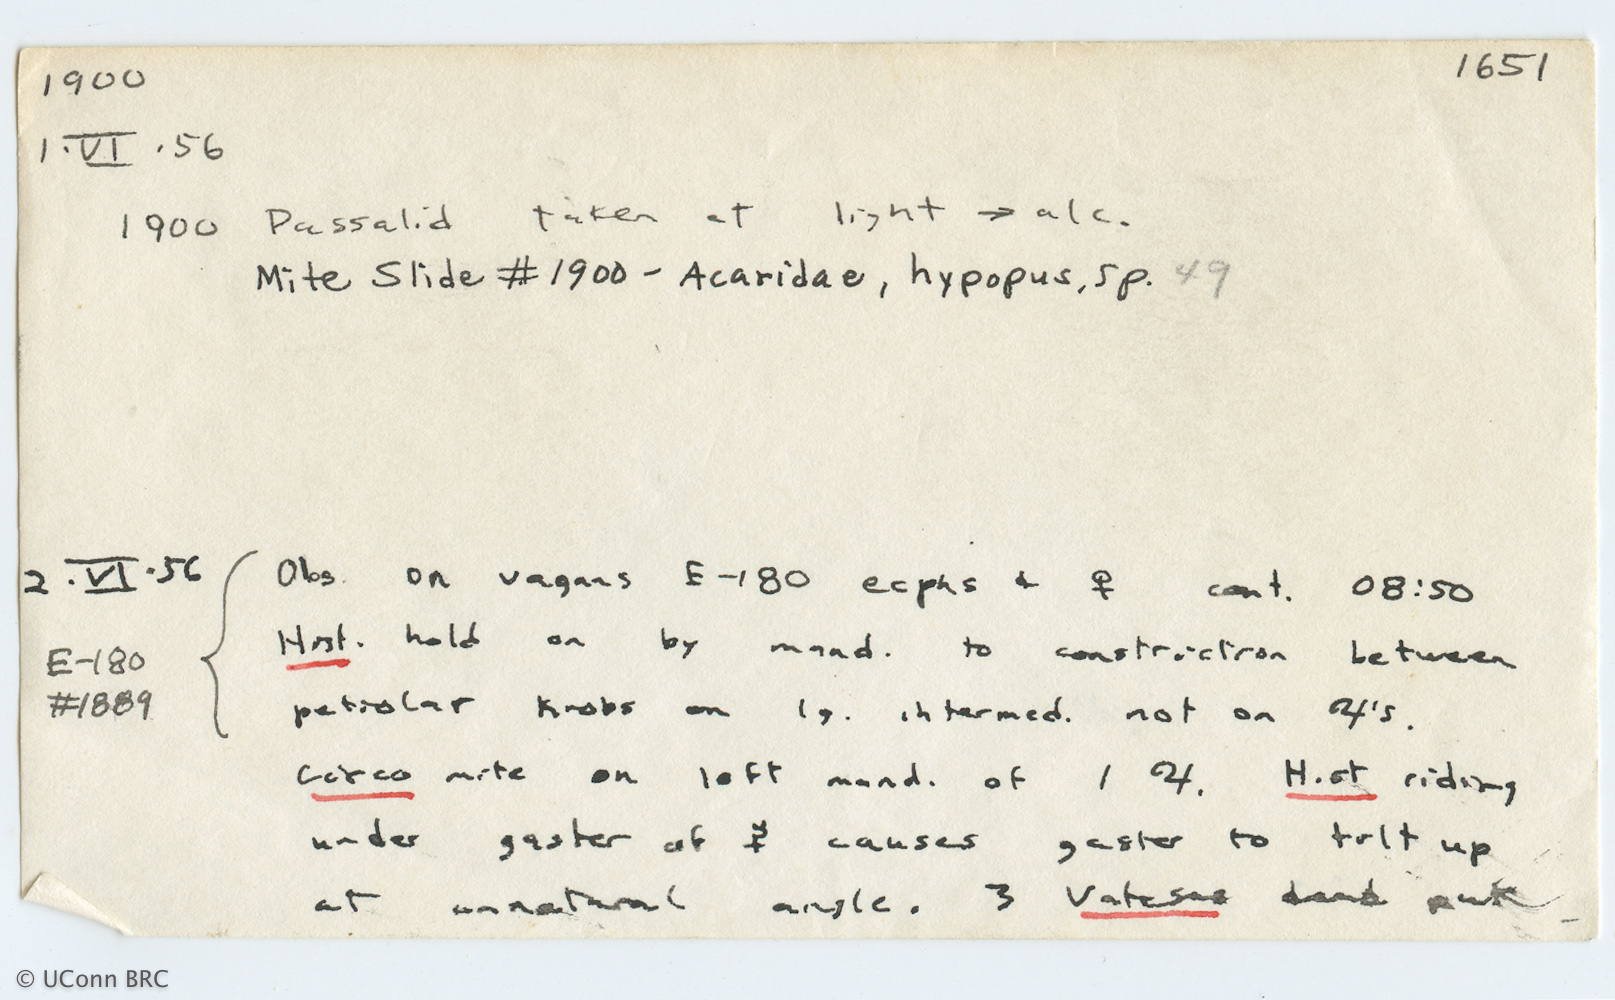 1900 1651
1·VI·56
1900 Passalid taken at light → alc.
Mite Slide #1900 - Acaridae, hypopus, sp. 49
2·VI·56 Obs. on vagans E-180 ecphs & ♀ cont. 08:50
Hist. hold on by mand. to constriction between
E-180
#1889
petiolar knobs on lg. intermed. not on ♃'s.
Circo mite on left mand. of 1 ♃. Hist riding
under gaster of ☿ causes gaster to tilt up
at unnatural angle. 3 Vatesus dead put
© UConn BRC